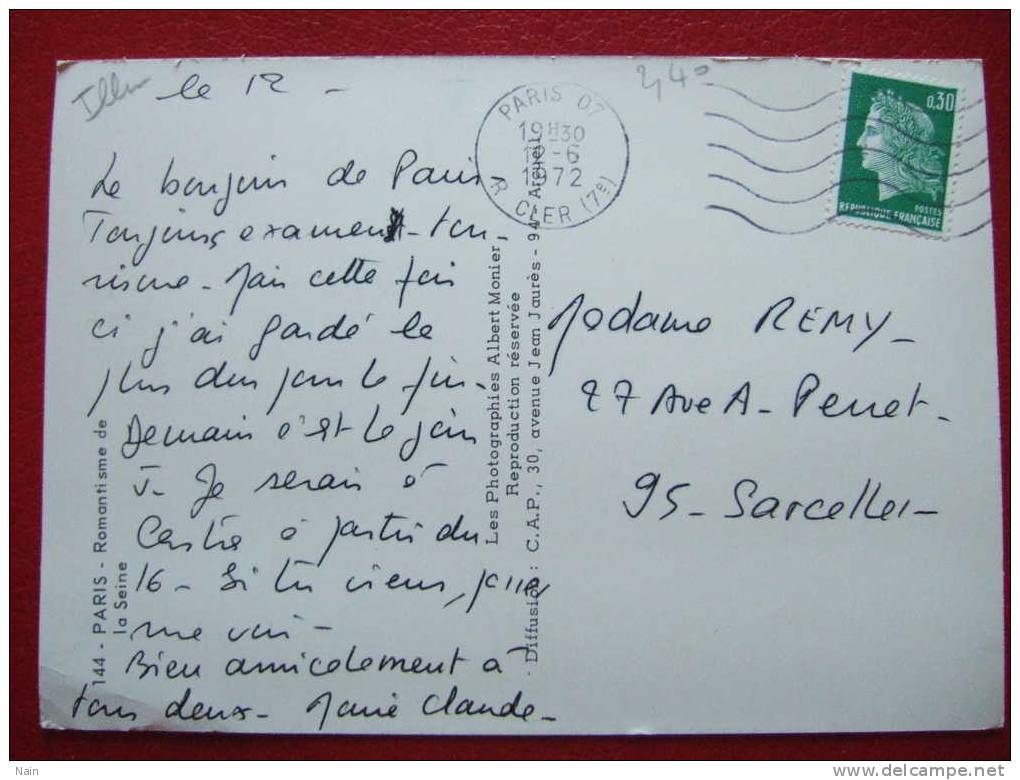 le 12 -
Le bonjour de Paris.
Toujours examens - tou-
risme - Mais cette fois
ci j'ai gardé le
plus dur pour la fin -
Demain c'est le jour
J - Je serai à
Castre à partir du
16 - Si tu viens, passe
me voir -
Bien amicalement à
tous deux - Marie Claude -
144 - PARIS - Romantisme de
la Seine
Les Photographies Albert Monier
Reproduction réservée
Diffusion : C.A.P., 30, avenue Jean Jaurès - 94 - Arcueil
PARIS 07
19H30
-6
1972
R. CLER (7e)
2,40
0,30
POSTES
REPUBLIQUE FRANÇAISE
Madame REMY -
27 Ave A - Perret -
95 - Sarcelles -
Nain
delcampe.net